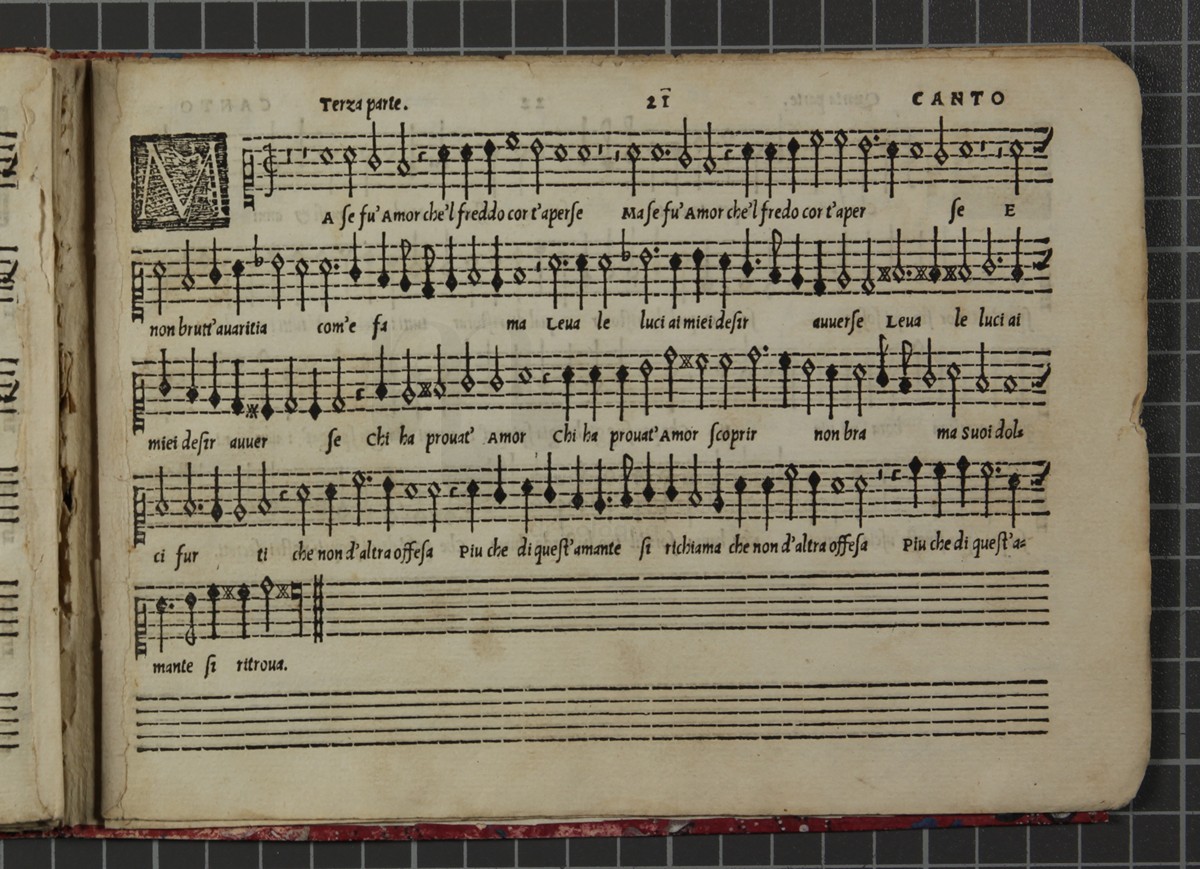 Terza parte. 21 CANTO
MA se fu' Amor che'l freddo cor t'aperse Ma se fu' Amor che'l fredo cor t'aper se E
non brutt'auaritia com'e fa ma Leua le luci ai miei desir auuerse Leua le luci ai
miei desir auuer se Chi ha prouat' Amor Chi ha prouat' Amor scoprir non bra ma Suoi dol=
ci fur ti che non d'altra offesa Piu che di quest'amante si richiama che non d'altra offesa Piu che di quest'a=
mante si ritroua.